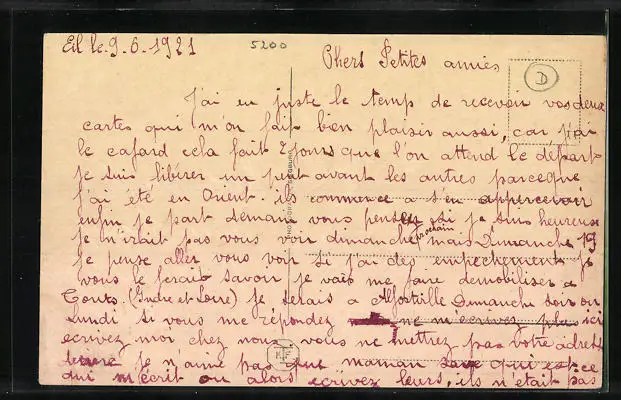 Eil le. 9. 6. 1921
5200
Chers Petites amies,
D
J'ai eu juste le temp de recevoir vos deux
cartes qui m'on fait bien plaisir aussi, car j'ai
le cafard cela fait 2 jours que l'on attend le départ
je suis libérer un peut avant les autres parceque
j'ai été en Orient. ils commence a s'en appercevoir
enfin je part demain vous pensez si je suis heureuse
je n'irait pas vous voir dimanche prochain mais Dimanche 19
je pense aller vous voir si j'ai des empechements je
vous le ferais savoir je vais me faire demobiliser a
Tours. (Indre et Loire) je serais a Alfortville Dimanche soir ou
Lundi si vous me répondez ne m'ecrivez plus ici
ecrivez moi chez nous vous ne mettrez pas votre adresse
je n'aime pas que maman save qui est-ce
qui m'écrit ou alors ecrivez leurs, ils n'etait pas